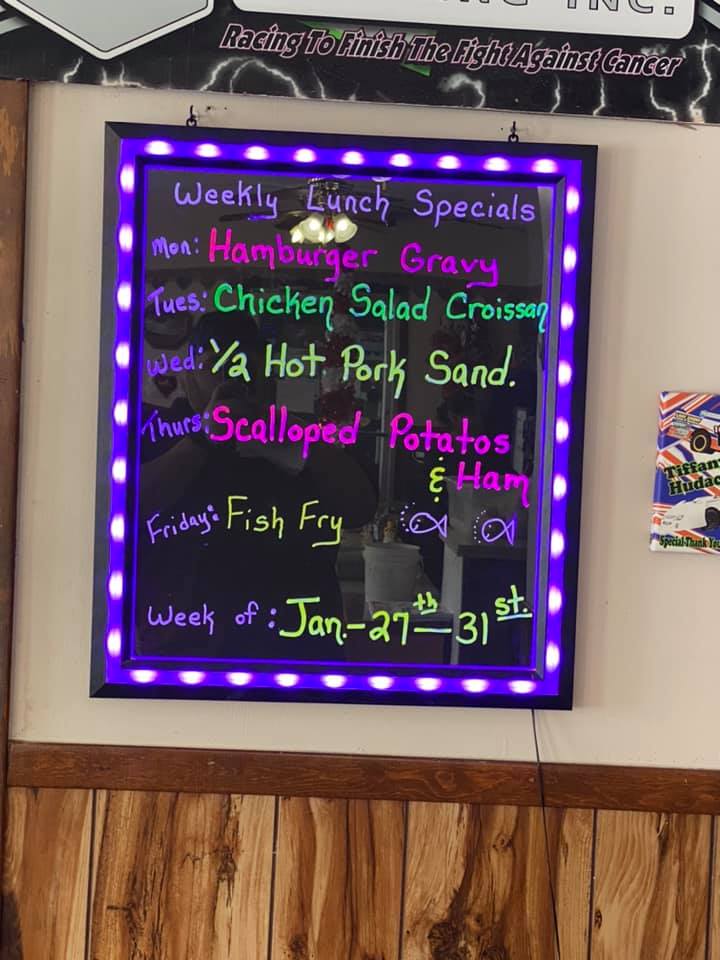 INC.
Racing To Finish The Fight Against Cancer
Weekly Lunch Specials
Mon: Hamburger Gravy
Tues: Chicken Salad Croissan
Wed: 1/2 Hot Pork Sand.
Thurs: Scalloped Potatos
& Ham
Friday: Fish Fry
Week of: Jan.-27th-31st.
Tiffan
Hudac
Special Thank You